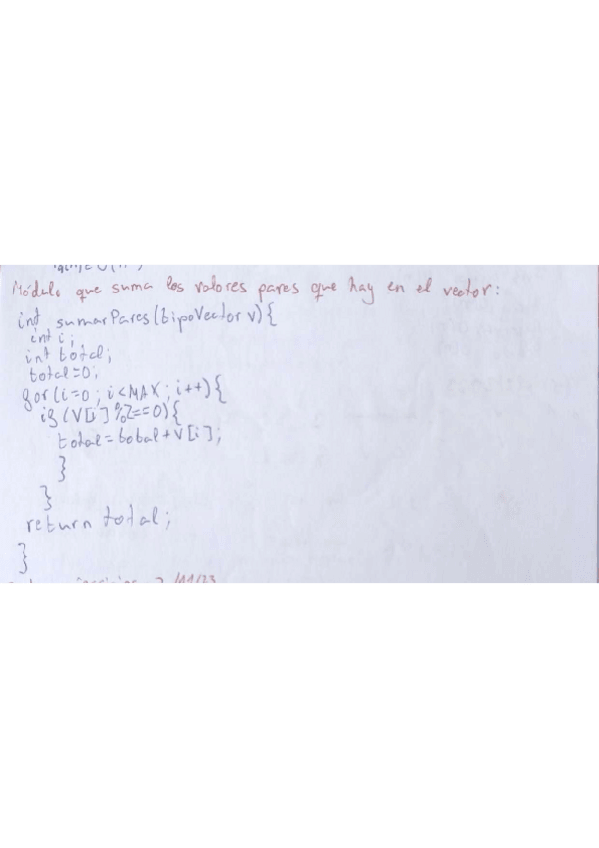 Módulo que suma los valores pares que hay en el vector:
int sumarPares(tipoVector v){
int i;
int total;
total=0;
for(i=0; i<MAX; i++){
if(V[i]%2==0){
total=total+V[i];
}
}
return total;
}